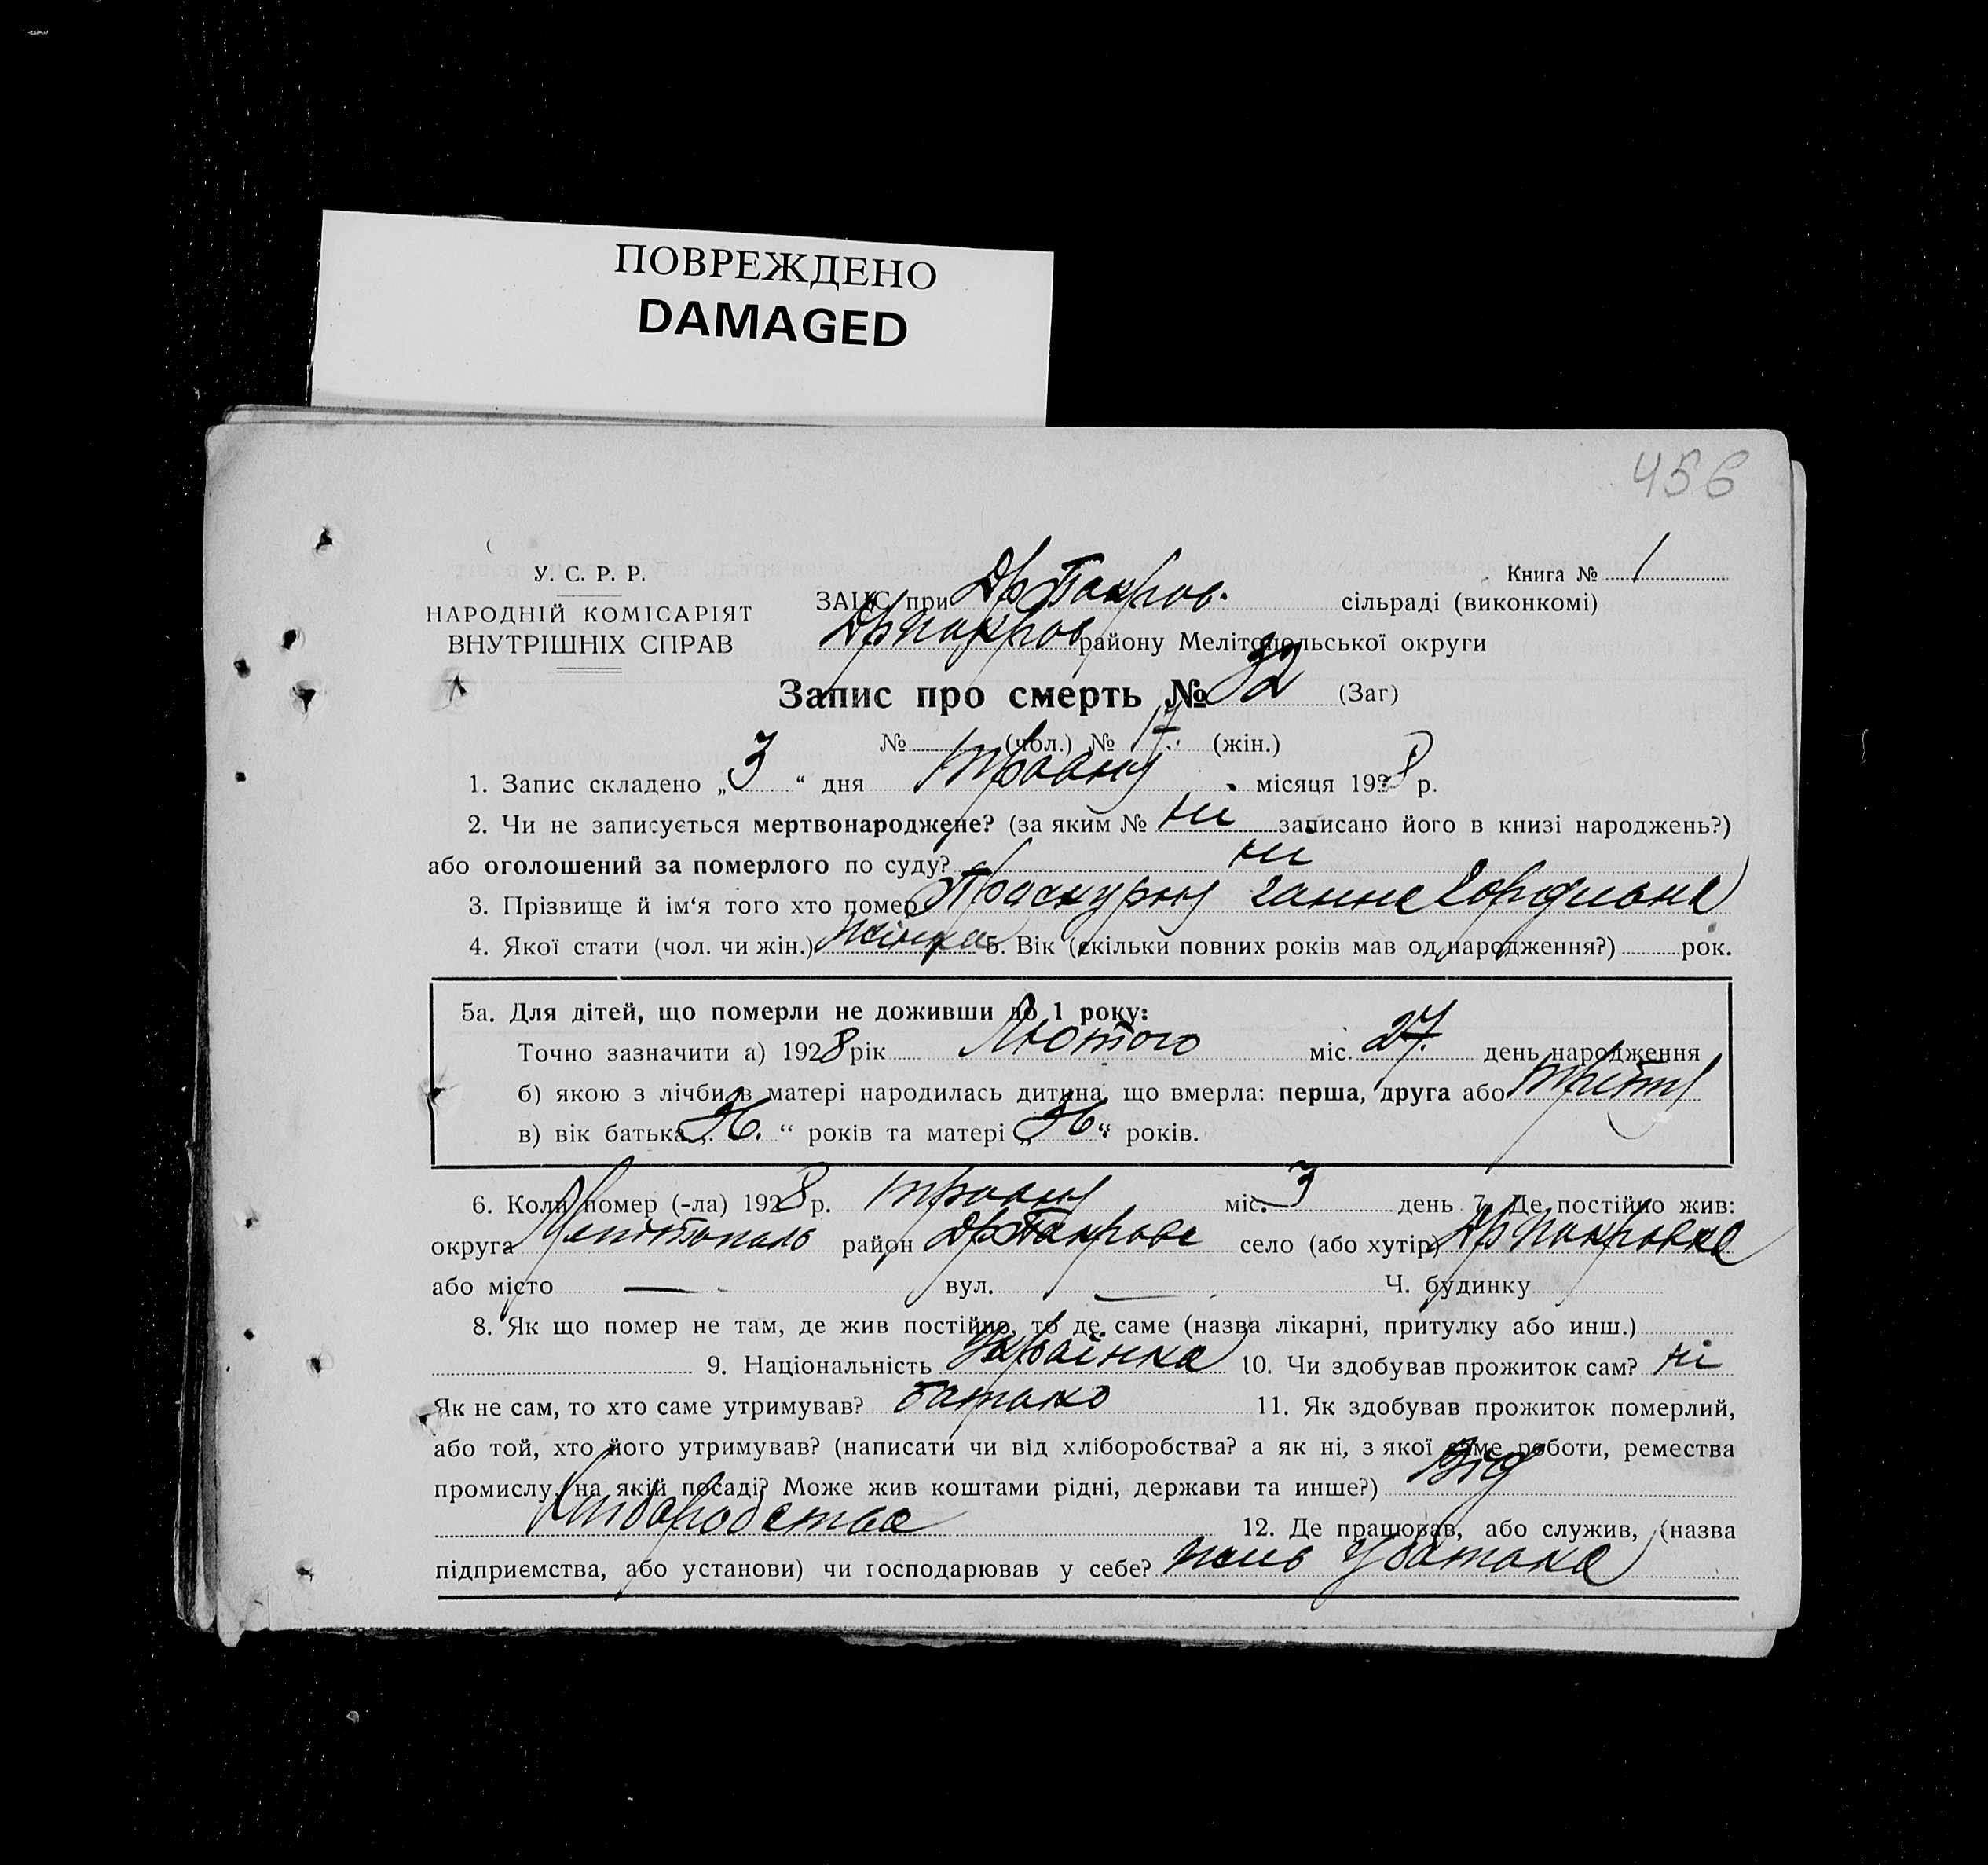 ПОВРЕЖДЕНО
DAMAGED
456
У. С. Р. Р.
НАРОДНІЙ КОМІСАРІЯТ
ВНУТРІШНІХ СПРАВ
Книга № 1
ЗАЦС при Др Покров. сільраді (виконкомі)
Др Покров району Мелітопольської округи
Запис про смерть № 32 (Заг)
№ (чол.) № 17. (жін.)
1. Запис складено „ 3 “ дня травня місяця 1928 р.
2. Чи не записується мертвонароджене? (за яким № ні записано його в книзі народжень?)
або оголошений за померлого по суду? ні
3. Прізвище й ім‘я того хто помер Праскурня Ганна Гордиона
4. Якої стати (чол. чи жін.) жінка 5. Вік (скільки повних років мав од народження?) рок.
5а. Для дітей, що померли не доживши до 1 року:
Точно зазначити а) 1928 рік Лютого міс. 27. день народження
б) якою з лічби в матері народилась дитина, що вмерла: перша, друга або третя
в) вік батька „ 36. “ років та матері „ 36 “ років.
6. Коли помер (-ла) 1928 р. травня міс. 3 день 7. Де постійно жив:
округа Мелітополь район Др Покрове село (або хутір) Др Покровка
або місто — вул. — Ч. будинку
8. Як що помер не там, де жив постійно, то де саме (назва лікарні, притулку або инш.)
9. Національність Українка 10. Чи здобував прожиток сам? ні
Як не сам, то хто саме утримував? батько 11. Як здобував прожиток померлий,
або той, хто його утримував? (написати чи від хліборобства? а як ні, з якої саме роботи, ремества
промислу, на якій посаді? Може жив коштами рідні, держави та инше?) Від
хліборобства 12. Де працював, або служив, (назва
підприємства, або установи) чи господарював у себе? жив у батька